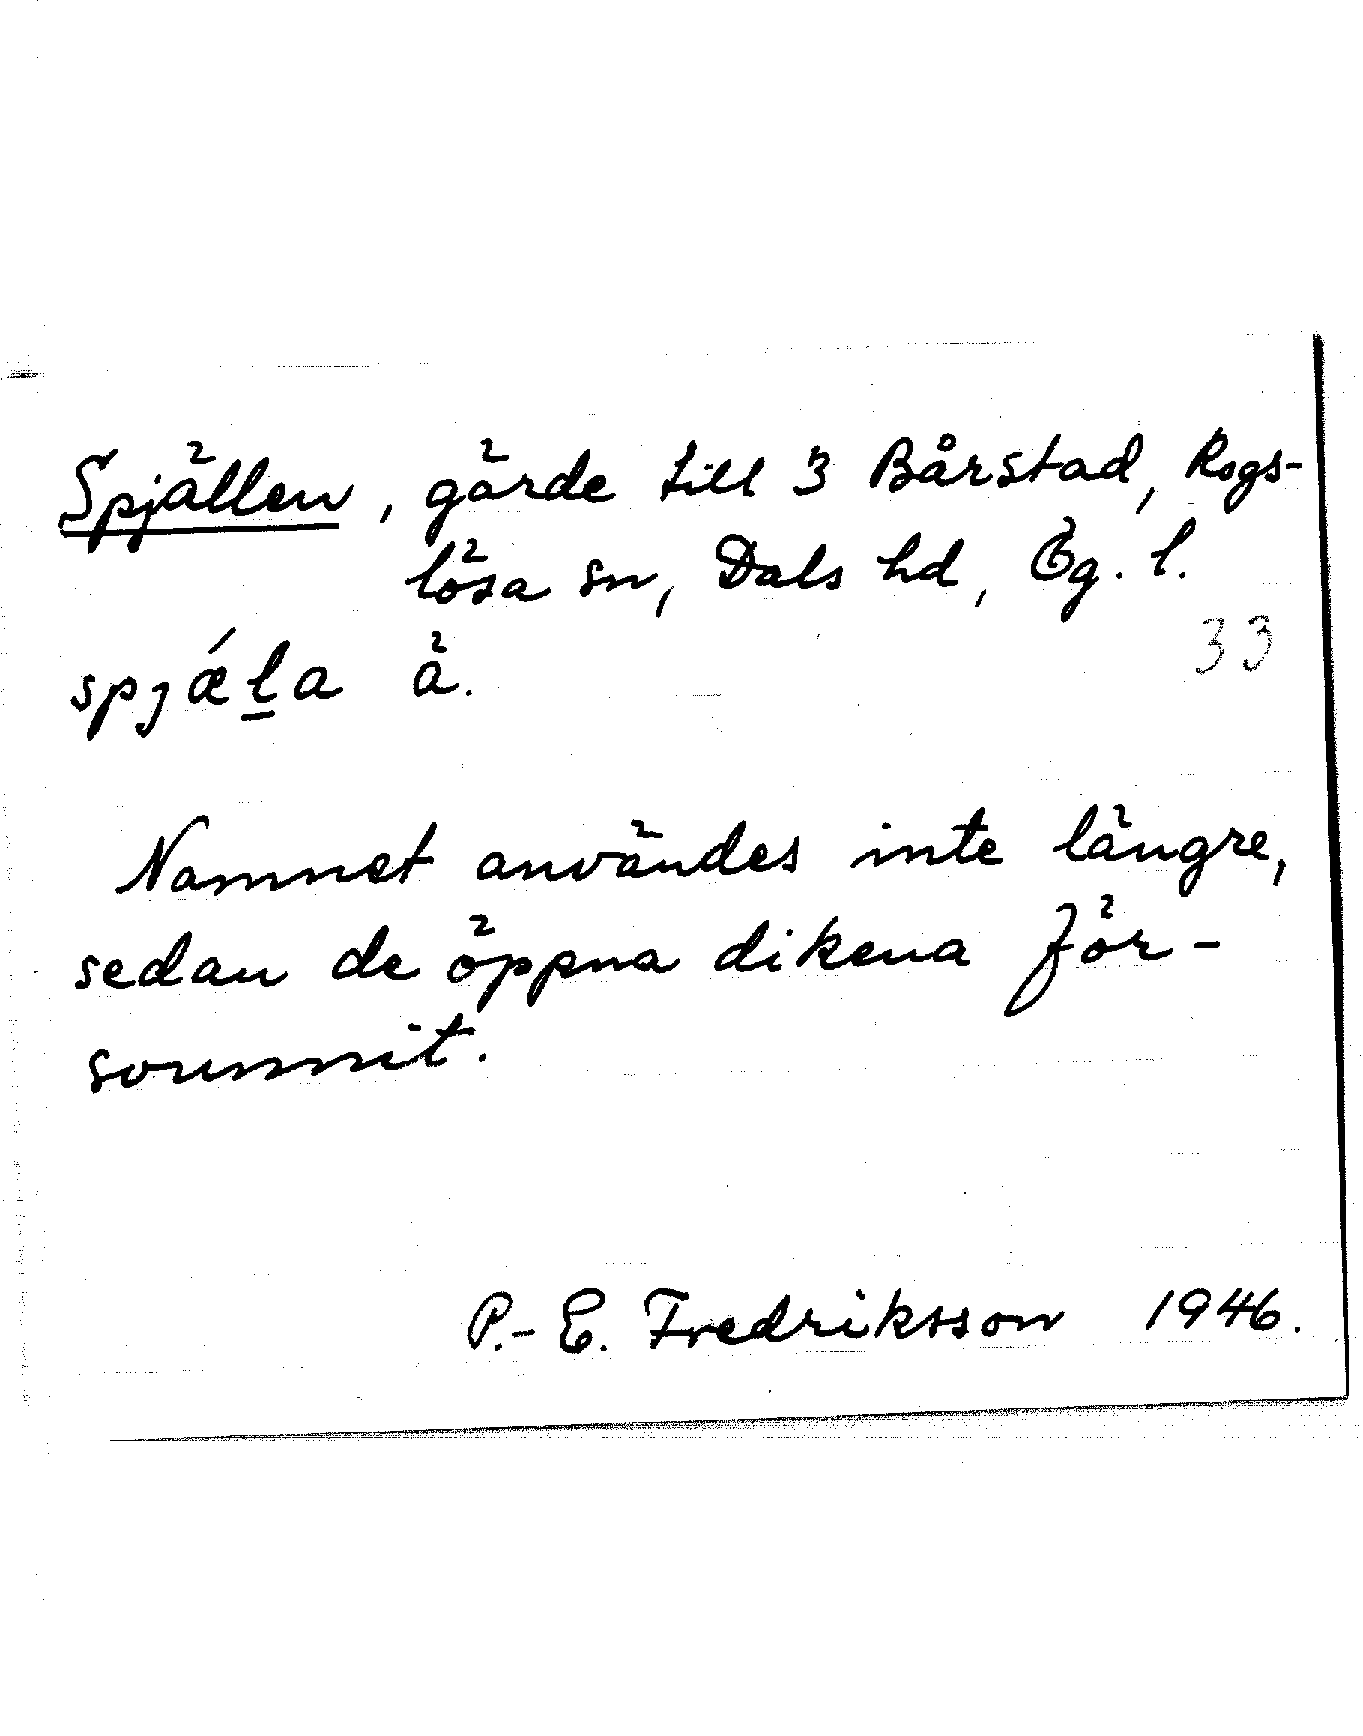 Spjällen, gärde till 3 Bårstad, Rogs-
lösa sn, Dals hd, Ög. l.
33
spjǽḻa ä.
Namnet användes inte längre,
sedan de öppna dikena för-
sounnit.
P.-E. Fredriksson 1946.